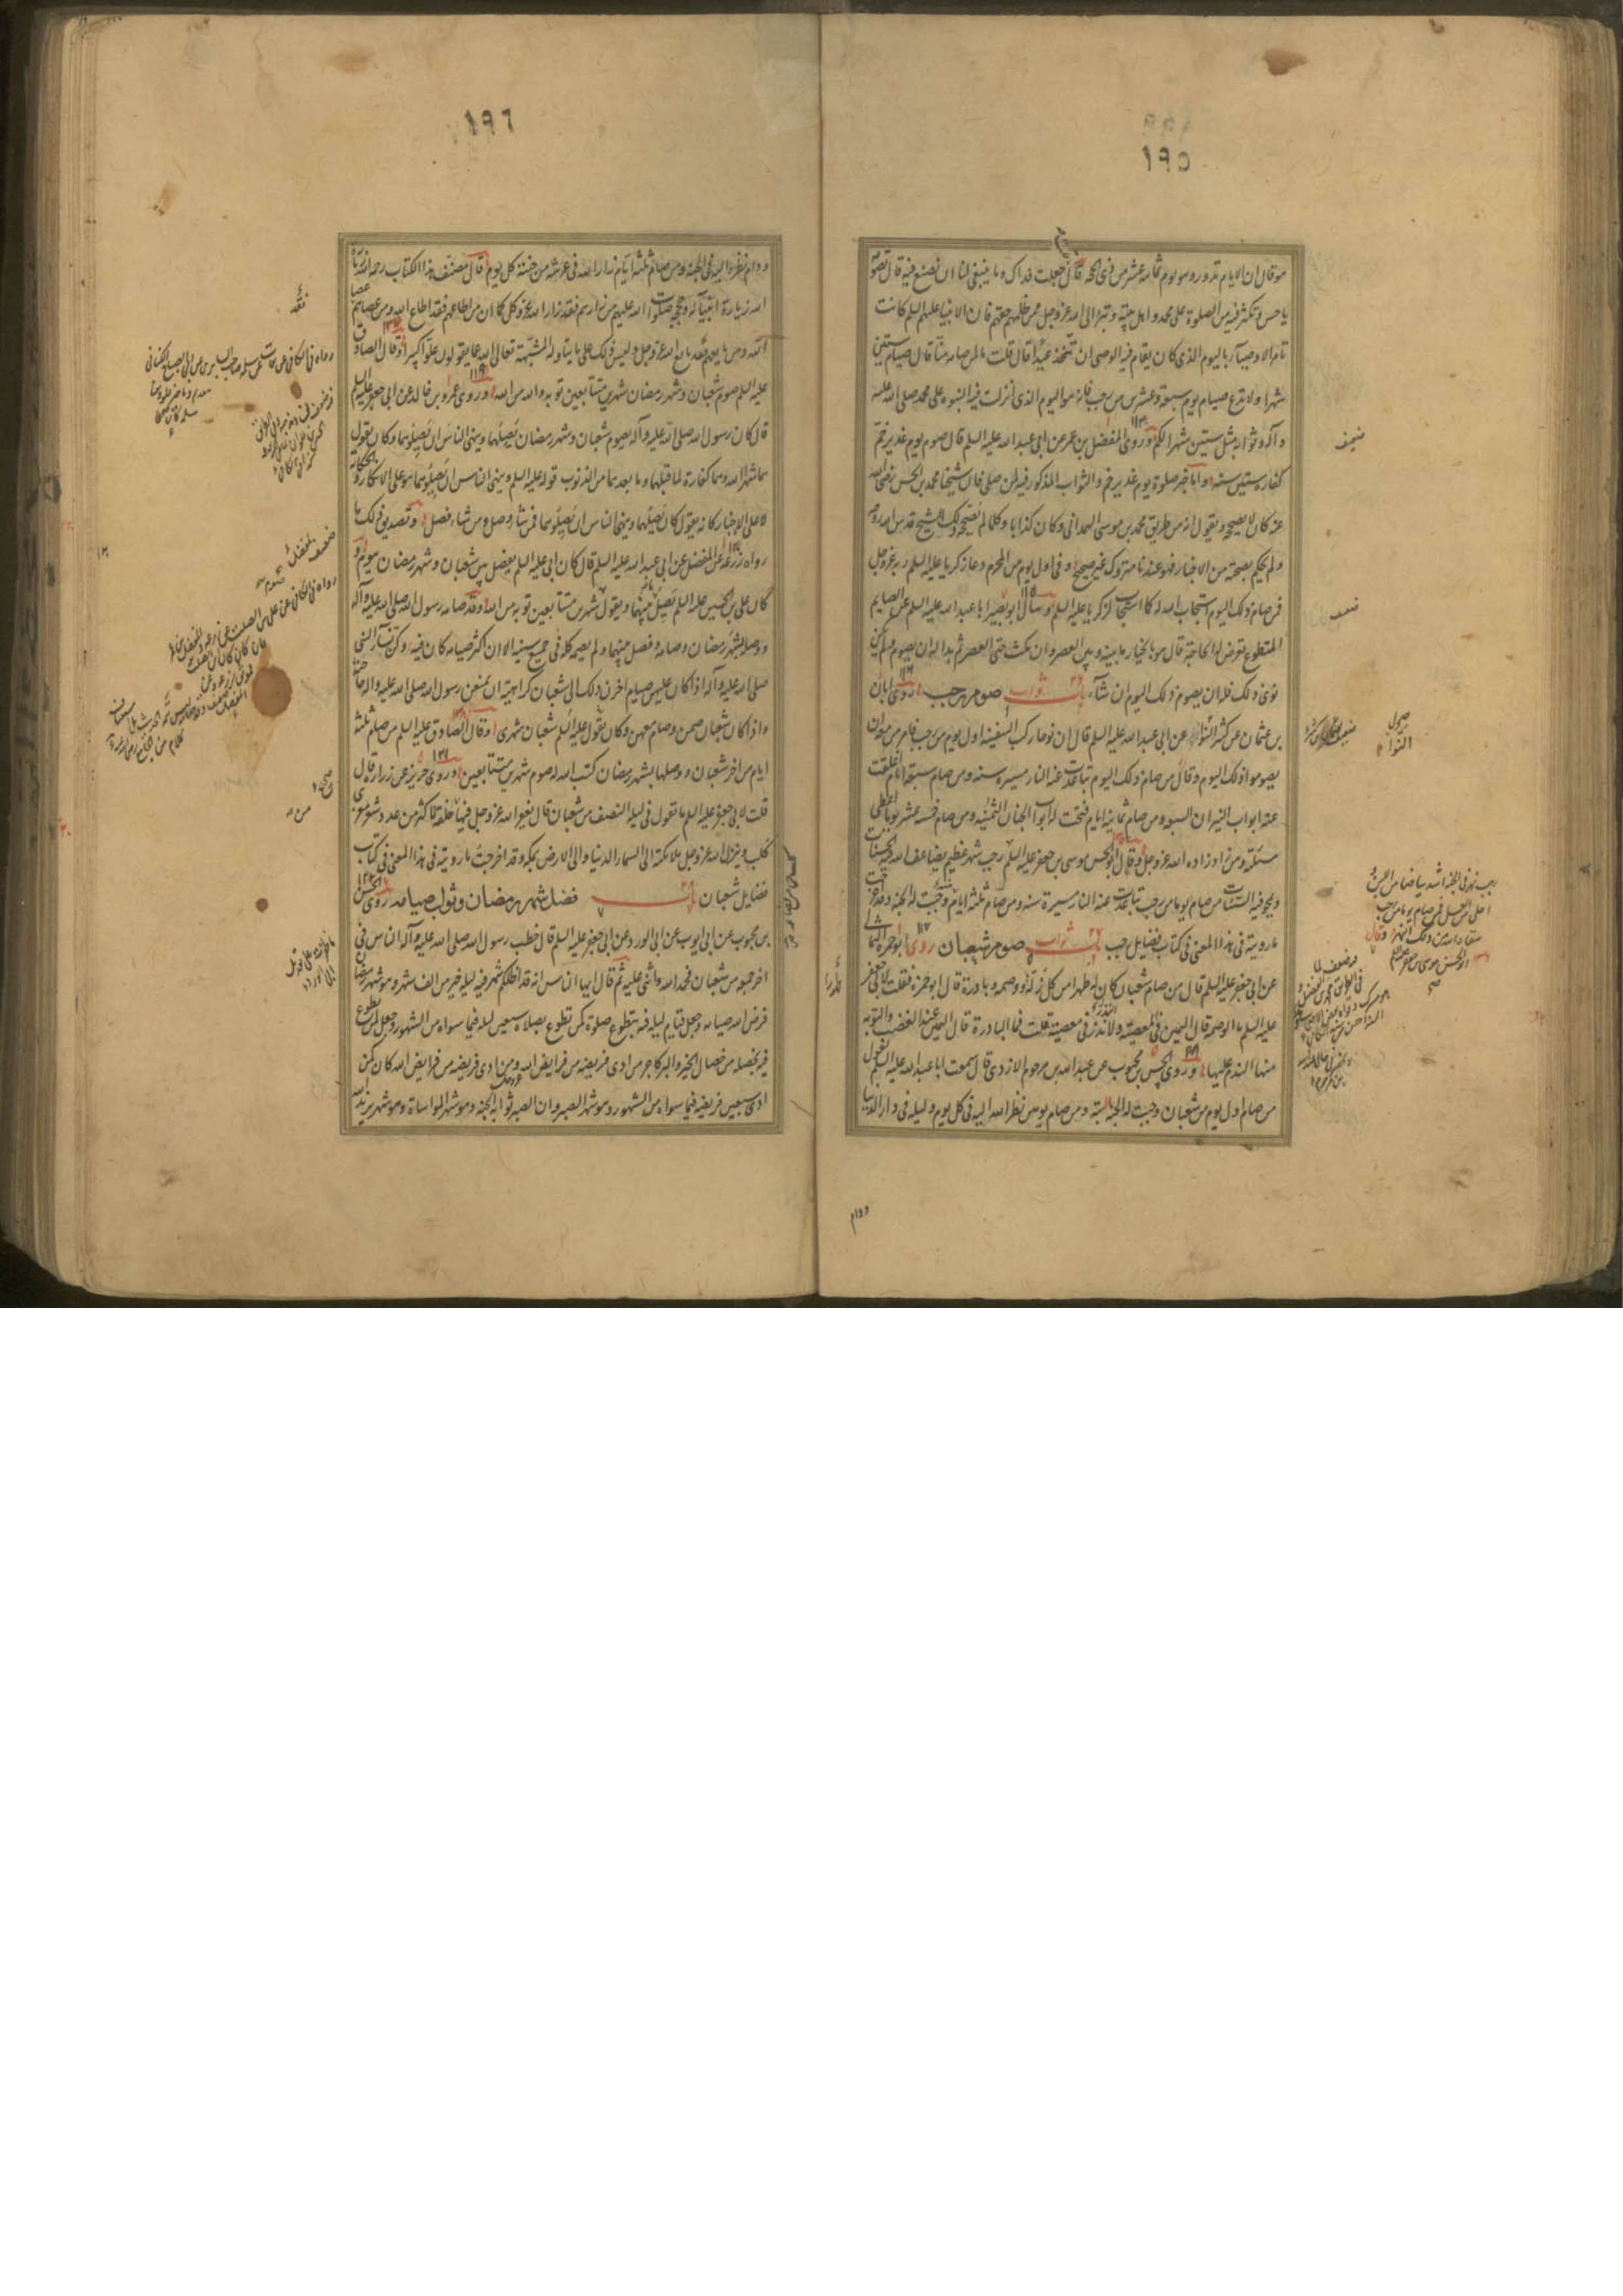 ١٩٥
هو قال ان الايام تدور وهو يوم ثمانية عشر من ذى الحجة قال جعلت فداك وما ينبغى لنا ان نصنع فيه قال تصومه
يا حسن وتكثر فيه من الصلوة على محمد واهل بيته وتبرأ الى الله عز وجل ممن ظلمهم حقهم فان الانبياء عليهم السلم كانت
تامر الاوصياء باليوم الذى كان يقام فيه الوصى ان تتخذ عيدا قال قلت ما لمن صامه منا قال صيام ستين
شهرا ولا تدع صيام يوم سبعة وعشرين من رجب فانه هو اليوم الذى انزلت فيه النبوة على محمد صلى الله عليه
وآله وثوابه مثل ستين شهرا لكم وروى المفضل بن عمر عن ابى عبد الله عليه السلم قال صوم يوم غدير خم
كفارة ستين سنة واما خبر صلوة يوم غدير خم والثواب المذكور فيه لمن صامه فان شيخنا محمد بن الحسن رضى الله
عنه كان لا يصححه ويقول انه من طريق محمد بن موسى الهمدانى وكان كذابا وكلما لم يصححه ذلك الشيخ قدس الله روحه
ولم يحكم بصحته من الاخبار فهو عندنا متروك غير صحيح وفى اول يوم من المحرم دعا زكريا عليه السلم ربه عز وجل
فمن صام ذلك اليوم استجاب الله له كما استجاب لزكريا عليه السلم وسأل ابو بصير ابا عبد الله عليه السلم عن الصايم
المتطوع تعرض له الحاجة قال هو بالخيار ما بينه وبين العصر وان مكث حتى العصر ثم بدا له ان يصوم ولم يكن
نوى ذلك فله ان يصوم ذلك اليوم ان شاء باب ثواب صوم رجب روى ابان
بن عثمان عن كثير النوا عن ابى عبد الله عليه السلم قال ان نوحا ركب السفينة اول يوم من رجب فامر من معه ان
يصوموا ذلك اليوم وقال من صام ذلك اليوم تباعدت عنه النار مسيرة سنة ومن صام سبعة ايام اغلقت
عنه ابواب النيران السبعة ومن صام ثمانية ايام فتحت له ابواب الجنان الثمنية ومن صام خمسة عشر يوما اعطى
مسئلته ومن زاد زاده الله عز وجل وقال ابو الحسن موسى بن جعفر عليه السلم رجب شهر عظيم يضاعف الله فيه الحسنات
ويمحو فيه السيئات من صام يوما من رجب تباعدت عنه النار مسيرة سنة ومن صام ثلثة ايام وجبت له الجنة وقد اخرجت
ما رويته فى هذا المعنى فى كتاب فضايل رجب باب ثواب صوم شعبان روى ابو حمزة الثمالى
عن ابى جعفر عليه السلم قال من صام شعبان كان له طهرا من كل زلة ووصمة وبادرة قال ابو حمزة فقلت لابى جعفر
عليه السلم ما الوصمة قال اليمين فى المعصية ولا نذر فى معصية قلت فما البادرة قال اليمين عند الغضب والتوبة
منها الندم عليها وروى الحسن بن محبوب عن عبد الله بن مرحوم الازدى قال سمعت ابا عبد الله عليه السلم يقول
من صام اول يوم من شعبان وجبت له الجنة البتة ومن صام يومين نظر الله اليه فى كل يوم وليلة فى دار الدنيا
ودام
ضعيف
ضعيف
رجب نهر فى الجنة اشد بياضا من اللبن و
احلى من العسل فمن صام يوما من رجب
سقاه الله من ذلك النهر وقال
ابو الحسن موسى بن جعفر
١٩٦
ودام نظره اليه فى الجنة ومن صام ثلثة ايام زار الله فى عرشه من جنته كل يوم قال مصنف هذا الكتاب رحمه الله زيارة
الله زيارة انبيائه وحججه صلوات الله عليهم من زارهم فقد زار الله عز وجل كما ان من اطاعهم فقد اطاع الله ومن عصاهم فقد عصا
الله ومن تابعهم فقد تابع الله عز وجل وليس ذلك على ما يتاوله المشبهة تعالى الله عما يقولون علوا كبيرا وقال الصادق
عليه السلم صوم شعبان وشهر رمضان شهرين متتابعين توبة والله من الله وروى عمرو بن خالد عن ابى جعفر عليه السلم
قال كان رسول الله صلى الله عليه وآله يصوم شعبان وشهر رمضان يصلهما وينهى الناس ان يصلوهما وكان يقول
هما شهرا الله وهما كفارة لما قبلهما وما بعدهما من الذنوب قوله عليه السلم وينهى الناس ان يصلوهما هو على الانكار والحكاية
لا على الاخبار كانه يقول كان يصلهما وينهى الناس ان يصلوهما فمن شاء وصل ومن شاء فصل وتصديق ذلك ما
رواه زرعة عن المفضل عن ابى عبد الله عليه السلم قال كان ابى عليه السلم يفصل بين شعبان وشهر رمضان بيوم و
كان على بن الحسين عليه السلم يصل بينهما ويقول شهرين متتابعين توبة من الله وقد صامه رسول الله صلى الله عليه وآله
ووصله بشهر رمضان وصامه وفصل بينهما ولم يصمه كله فى جميع سنيه الا ان اكثر صيامه كان فيه وكن نساء النبى
صلى الله عليه وآله اذا كان عليهن صيام اخرن ذلك الى شعبان كراهية ان يمنعن رسول الله صلى الله عليه وآله حاجته
واذا كان شعبان صمن وصام معهن وكان يقول عليه السلم شعبان شهرى وقال الصادق عليه السلم من صام ثلثة
ايام من اخر شعبان ووصلها بشهر رمضان كتب الله له صوم شهرين متتابعين وروى حريز عن زرارة قال
قلت لابى جعفر عليه السلم ما تقول فى ليلة النصف من شعبان قال يغفر الله عز وجل فيها من خلقه لاكثر من عدد شعر معزى
كلب وينزل الله عز وجل ملائكته الى السماء الدنيا والى الارض بمكة وقد اخرجت ما رويته فى هذا المعنى فى كتاب
فضايل شعبان باب فضل شهر رمضان وثواب صيامه روى الحسن
بن محبوب عن ابى ايوب عن ابى الورد عن ابى جعفر عليه السلم قال خطب رسول الله صلى الله عليه وآله الناس فى
اخر جمعة من شعبان فحمد الله واثنى عليه ثم قال ايها الناس انه قد اظلكم شهر فيه ليلة خير من الف شهر وهو شهر رمضان
فرض الله صيامه وجعل قيام ليلة فيه بتطوع صلوة كمن تطوع بصلاة سبعين ليلة فيما سواه من الشهور وجعل لمن تطوع
فيه بخصلة من خصال الخير والبر كاجر من ادى فريضة من فرايض الله عز وجل ومن ادى فريضة من فرايض الله كان كمن
ادى سبعين فريضة فيما سواه من الشهور وهو شهر الصبر وان الصبر ثوابه الجنة وهو شهر المواساة وهو شهر يزيد الله